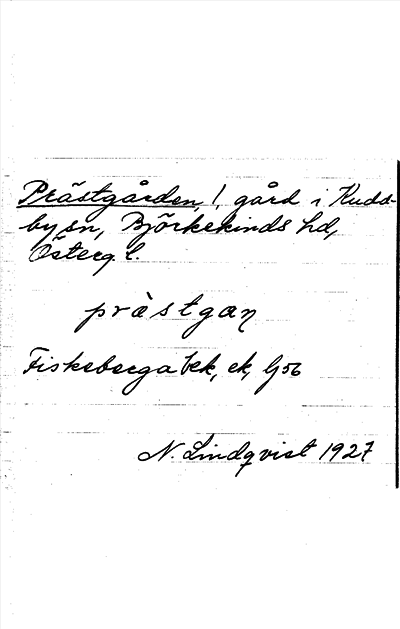 Prästgården, 1, gård i Kudd-
by sn, Björkekinds hd,
Österg l.
prästgaɳ
Fiskeberga bek, ek, lj 56
N. Lindqvist 1927